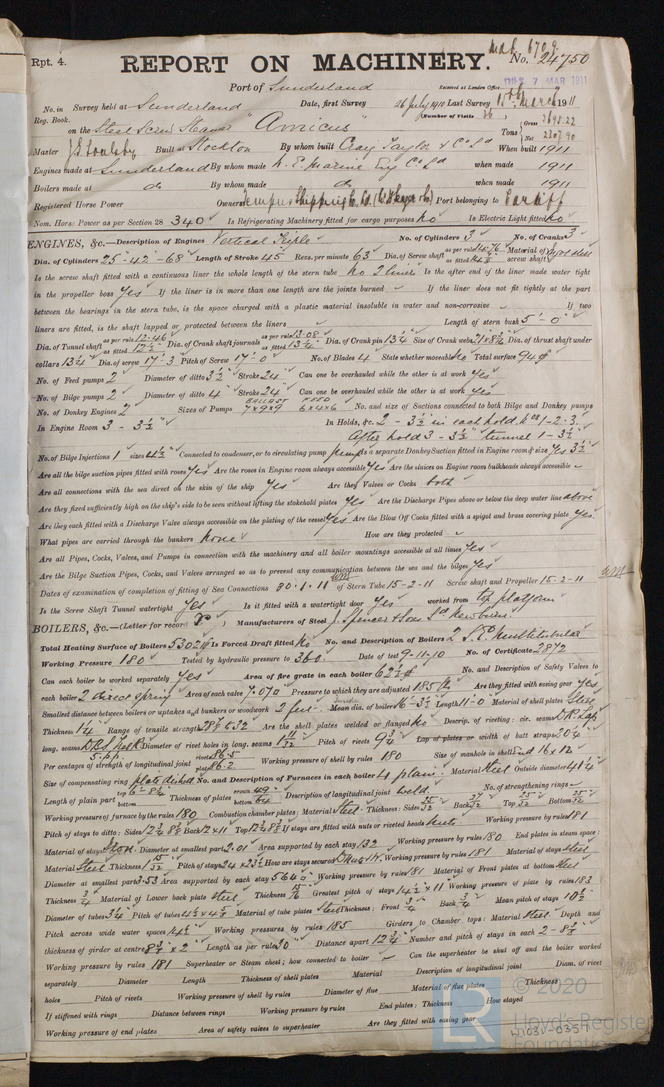 Rpt. 4. REPORT ON MACHINERY. No. 24750
Port of Sunderland Received at London Office 7 MAR 1911
No. in Survey held at Sunderland Date, first Survey 26 July 1910 Last Survey 15th March 1911
Reg. Book. (Number of Visits 36)
on the Steel Screw Steamer "Amicus" Tons Gross 3695.22 Net 2307.90
Master Built at Stockton By whom built Craig Taylor & Co Ld When built 1911
Engines made at Sunderland By whom made N. E. Marine Eng Co Ld when made 1911
Boilers made at do By whom made do when made 1911
Registered Horse Power Owners Port belonging to Cardiff
Nom. Horse Power as per Section 28 340 Is Refrigerating Machinery fitted for cargo purposes No Is Electric Light fitted No
ENGINES, &c.—Description of Engines Vertical Triple No. of Cylinders 3 No. of Cranks 3
Dia. of Cylinders 25-42-68 Length of Stroke 45 Revs. per minute 63 Dia. of Screw shaft as per rule 14.76 as fitted Material of screw shaft
Is the screw shaft fitted with a continuous liner the whole length of the stern tube No 2 liners Is the after end of the liner made water tight
in the propeller boss Yes If the liner is in more than one length are the joints burned If the liner does not fit tightly at the part
between the bearings in the stern tube, is the space charged with a plastic material insoluble in water and non-corrosive If two
liners are fitted, is the shaft lapped or protected between the liners Length of stern bush 5'-0"
Dia. of Tunnel shaft as per rule 12.46 as fitted 12½ Dia. of Crank shaft journals as per rule 13.08 as fitted 13¼ Dia. of Crank pin 13¼ Size of Crank webs Dia. of thrust shaft under
collars 13¼ Dia. of screw 17'-3 Pitch of Screw 17'-0 No. of Blades 4 State whether moveable No Total surface
No. of Feed pumps 2 Diameter of ditto 3½ Stroke 24 Can one be overhauled while the other is at work Yes
No. of Bilge pumps 2 Diameter of ditto 4 Stroke 24 Can one be overhauled while the other is at work Yes
No. of Donkey Engines 2 Sizes of Pumps BALLAST 7x9x9 FEED 6x4x6 No. and size of Suctions connected to both Bilge and Donkey pumps
In Engine Room 3 - 3½" In Holds, &c. 2 - 3½" in each hold Nos 1-2-3.
After hold 3 - 3½" tunnel 1 - 3½
No. of Bilge Injections 1 sizes 4½ Connected to condenser, or to circulating pump pump Is a separate Donkey Suction fitted in Engine room & size Yes 3½"
Are all the bilge suction pipes fitted with roses Yes Are the roses in Engine room always accessible Yes Are the sluices on Engine room bulkheads always accessible
Are all connections with the sea direct on the skin of the ship Yes Are they Valves or Cocks both
Are they fixed sufficiently high on the ship's side to be seen without lifting the stokehold plates Yes Are the Discharge Pipes above or below the deep water line above
Are they each fitted with a Discharge Valve always accessible on the plating of the vessel Yes Are the Blow Off Cocks fitted with a spigot and brass covering plate Yes
What pipes are carried through the bunkers None How are they protected
Are all Pipes, Cocks, Valves, and Pumps in connection with the machinery and all boiler mountings accessible at all times Yes
Are the Bilge Suction Pipes, Cocks, and Valves arranged so as to prevent any communication between the sea and the bilges Yes
Dates of examination of completion of fitting of Sea Connections 30.1.11 of Stern Tube 15-2-11 Screw shaft and Propeller 15-2-11
Is the Screw Shaft Tunnel watertight Yes Is it fitted with a watertight door Yes worked from top platform
BOILERS, &c.—(Letter for record ) Manufacturers of Steel J. Spencer & Sons Ld Newburn.
Total Heating Surface of Boilers 5302 Is Forced Draft fitted No No. and Description of Boilers 2 S.E. Multitubular
Working Pressure 180 Tested by hydraulic pressure to 360 Date of test 9-11-10 No. of Certificate 2872
Can each boiler be worked separately Yes Area of fire grate in each boiler 62½ No. and Description of Safety Valves to
each boiler 2 direct spring Area of each valve 7.070 Pressure to which they are adjusted 185 lb Are they fitted with easing gear Yes
Smallest distance between boilers or uptakes and bunkers or woodwork 2 feet Mean dia. of boilers 16'-3½ Length 11'-0 Material of shell plates Steel
Thickness 1¼ Range of tensile strength 28½ & 32 Are the shell plates welded or flanged No Descrip. of riveting: cir. seams DR. Lap
long. seams Diameter of rivet holes in long. seams Pitch of rivets 9¼ Lap of plates or width of butt straps 20¼
Per centages of strength of longitudinal joint rivets 86.5 plate 86.2 Working pressure of shell by rules 180 Size of manhole in shell End 16x12
Size of compensating ring plate dished No. and Description of Furnaces in each boiler 4 plain Material Steel Outside diameter 41¼
Length of plain part top bottom Thickness of plates crown bottom Description of longitudinal joint weld No. of strengthening rings
Working pressure of furnace by the rules 180 Combustion chamber plates: Material Steel Thickness: Sides 25/32 Back 27/32 Top 25/32 Bottom 25/32
Pitch of stays to ditto: Sides Back 12x11 Top If stays are fitted with nuts or riveted heads nuts Working pressure by rules 181
Material of stays Diameter at smallest part 2.01 Area supported by each stay 132 Working pressure by rules 180 End plates in steam space:
Material Steel Thickness 1 15/32 Pitch of stays 24 x 23½ How are stays secured Working pressure by rules 181 Material of stays Steel
Diameter at smallest part Area supported by each stay 564 Working pressure by rules 181 Material of Front plates at bottom Steel
Thickness ¾ Material of Lower back plate Steel Thickness 15/16 Greatest pitch of stays 14½ x 11 Working pressure of plate by rules 183
Diameter of tubes 3¼ Pitch of tubes Material of tube plates Steel Thickness: Front ¾ Back ¾ Mean pitch of stays 10½
Pitch across wide water spaces 14½ Working pressures by rules 185 Girders to Chamber tops: Material Steel Depth and
thickness of girder at centre Length as per rule 30 Distance apart 12¾ Number and pitch of stays in each 2 - 8⅞
Working pressure by rules 181 Superheater or Steam chest; how connected to boiler Can the superheater be shut off and the boiler worked
separately Diameter Length Thickness of shell plates Material Description of longitudinal joint Diam. of rivet
holes Pitch of rivets Working pressure of shell by rules Diameter of flue Material of flue plates Thickness
If stiffened with rings Distance between rings Working pressure by rules End plates: Thickness How stayed
Working pressure of end plates Area of safety valves to superheater Are they fitted with easing gear
© 2020
Lloyd's Register
Foundation
W1031-0359